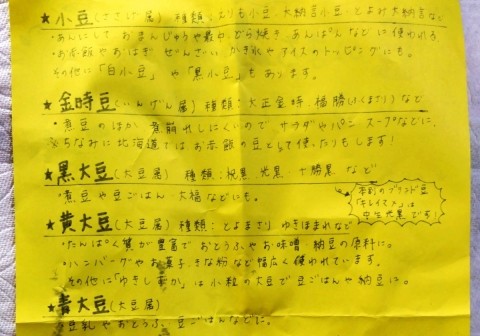 ★小豆(ささげ属) 種類:えりも小豆・大納言小豆・とよみ大納言など
・あんにして おまんじゅうや最中、どら焼き、あんぱんなどに使われる
・お赤飯やおはぎ ぜんざい かき氷やアイスのトッピングにも。
その他に「白小豆」や「黒小豆」もあります。
★金時豆(いんげん属) 種類:大正金時、福勝(ふくまさり)など
・煮豆のほか 煮崩れしにくいので サラダやパン スープなどに、
※ちなみに北海道では お赤飯の豆として使ったりもします!
★黒大豆(大豆属) 種類:祝黒、光黒、十勝黒 など
・煮豆や豆ごはん・大福などにも。
本別のブランド豆
「キレイマメ」は
中生光黒です!
★黄大豆(大豆属) 種類:とよまさり ゆきほまれなど
・たんぱく質が豊富で おとうふやお味噌 納豆の原料に。
・ハンバーグやお菓子、きな粉など幅広く使われています。
その他に「ゆきしずか」は小粒の大豆で豆ごはんや納豆に。
★青大豆(大豆属)
豆乳やおとうふ、豆ごはんなどに。